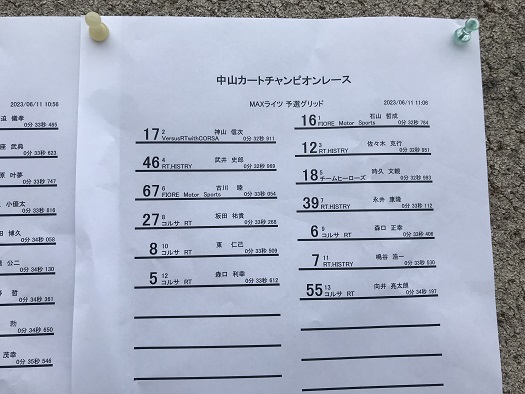 中山カートチャンピオンレース
MAXライツ 予選グリッド
2023/06/11 11:06
16 1 石山 哲成
FIORE Motor Sports 0分 32秒 764
17 2 神山 信次
VersusRTwithCORSA 0分 32秒 911
12 3 佐々木 克行
RT.HISTRY 0分 32秒 951
46 4 武井 史郎
RT.HISTRY 0分 32秒 969
18 5 時久 文毅
チームヒーローズ 0分 32秒 993
67 6 古川 陸
FIORE Motor Sports 0分 33秒 054
39 7 永井 康隆
RT.HISTRY 0分 33秒 112
27 8 坂田 祐貴
コルサ RT 0分 33秒 268
6 9 森口 正幸
コルサ RT 0分 33秒 406
8 10 東 仁己
コルサ RT 0分 33秒 509
7 11 嶋谷 浩一
RT.HISTRY 0分 33秒 530
5 12 森口 利幸
コルサ RT 0分 33秒 612
55 13 向井 亮太朗
コルサ RT 0分 34秒 197
2023/06/11 10:56
0分 33秒 465
座 武典
0分 33秒 623
原 叶夢
0分 33秒 747
小優太
0分 33秒 816
田 博久
0分 34秒 058
公二
0分 34秒 130
哲
0分 34秒 361
0分 34秒 650
茂幸
0分 35秒 546